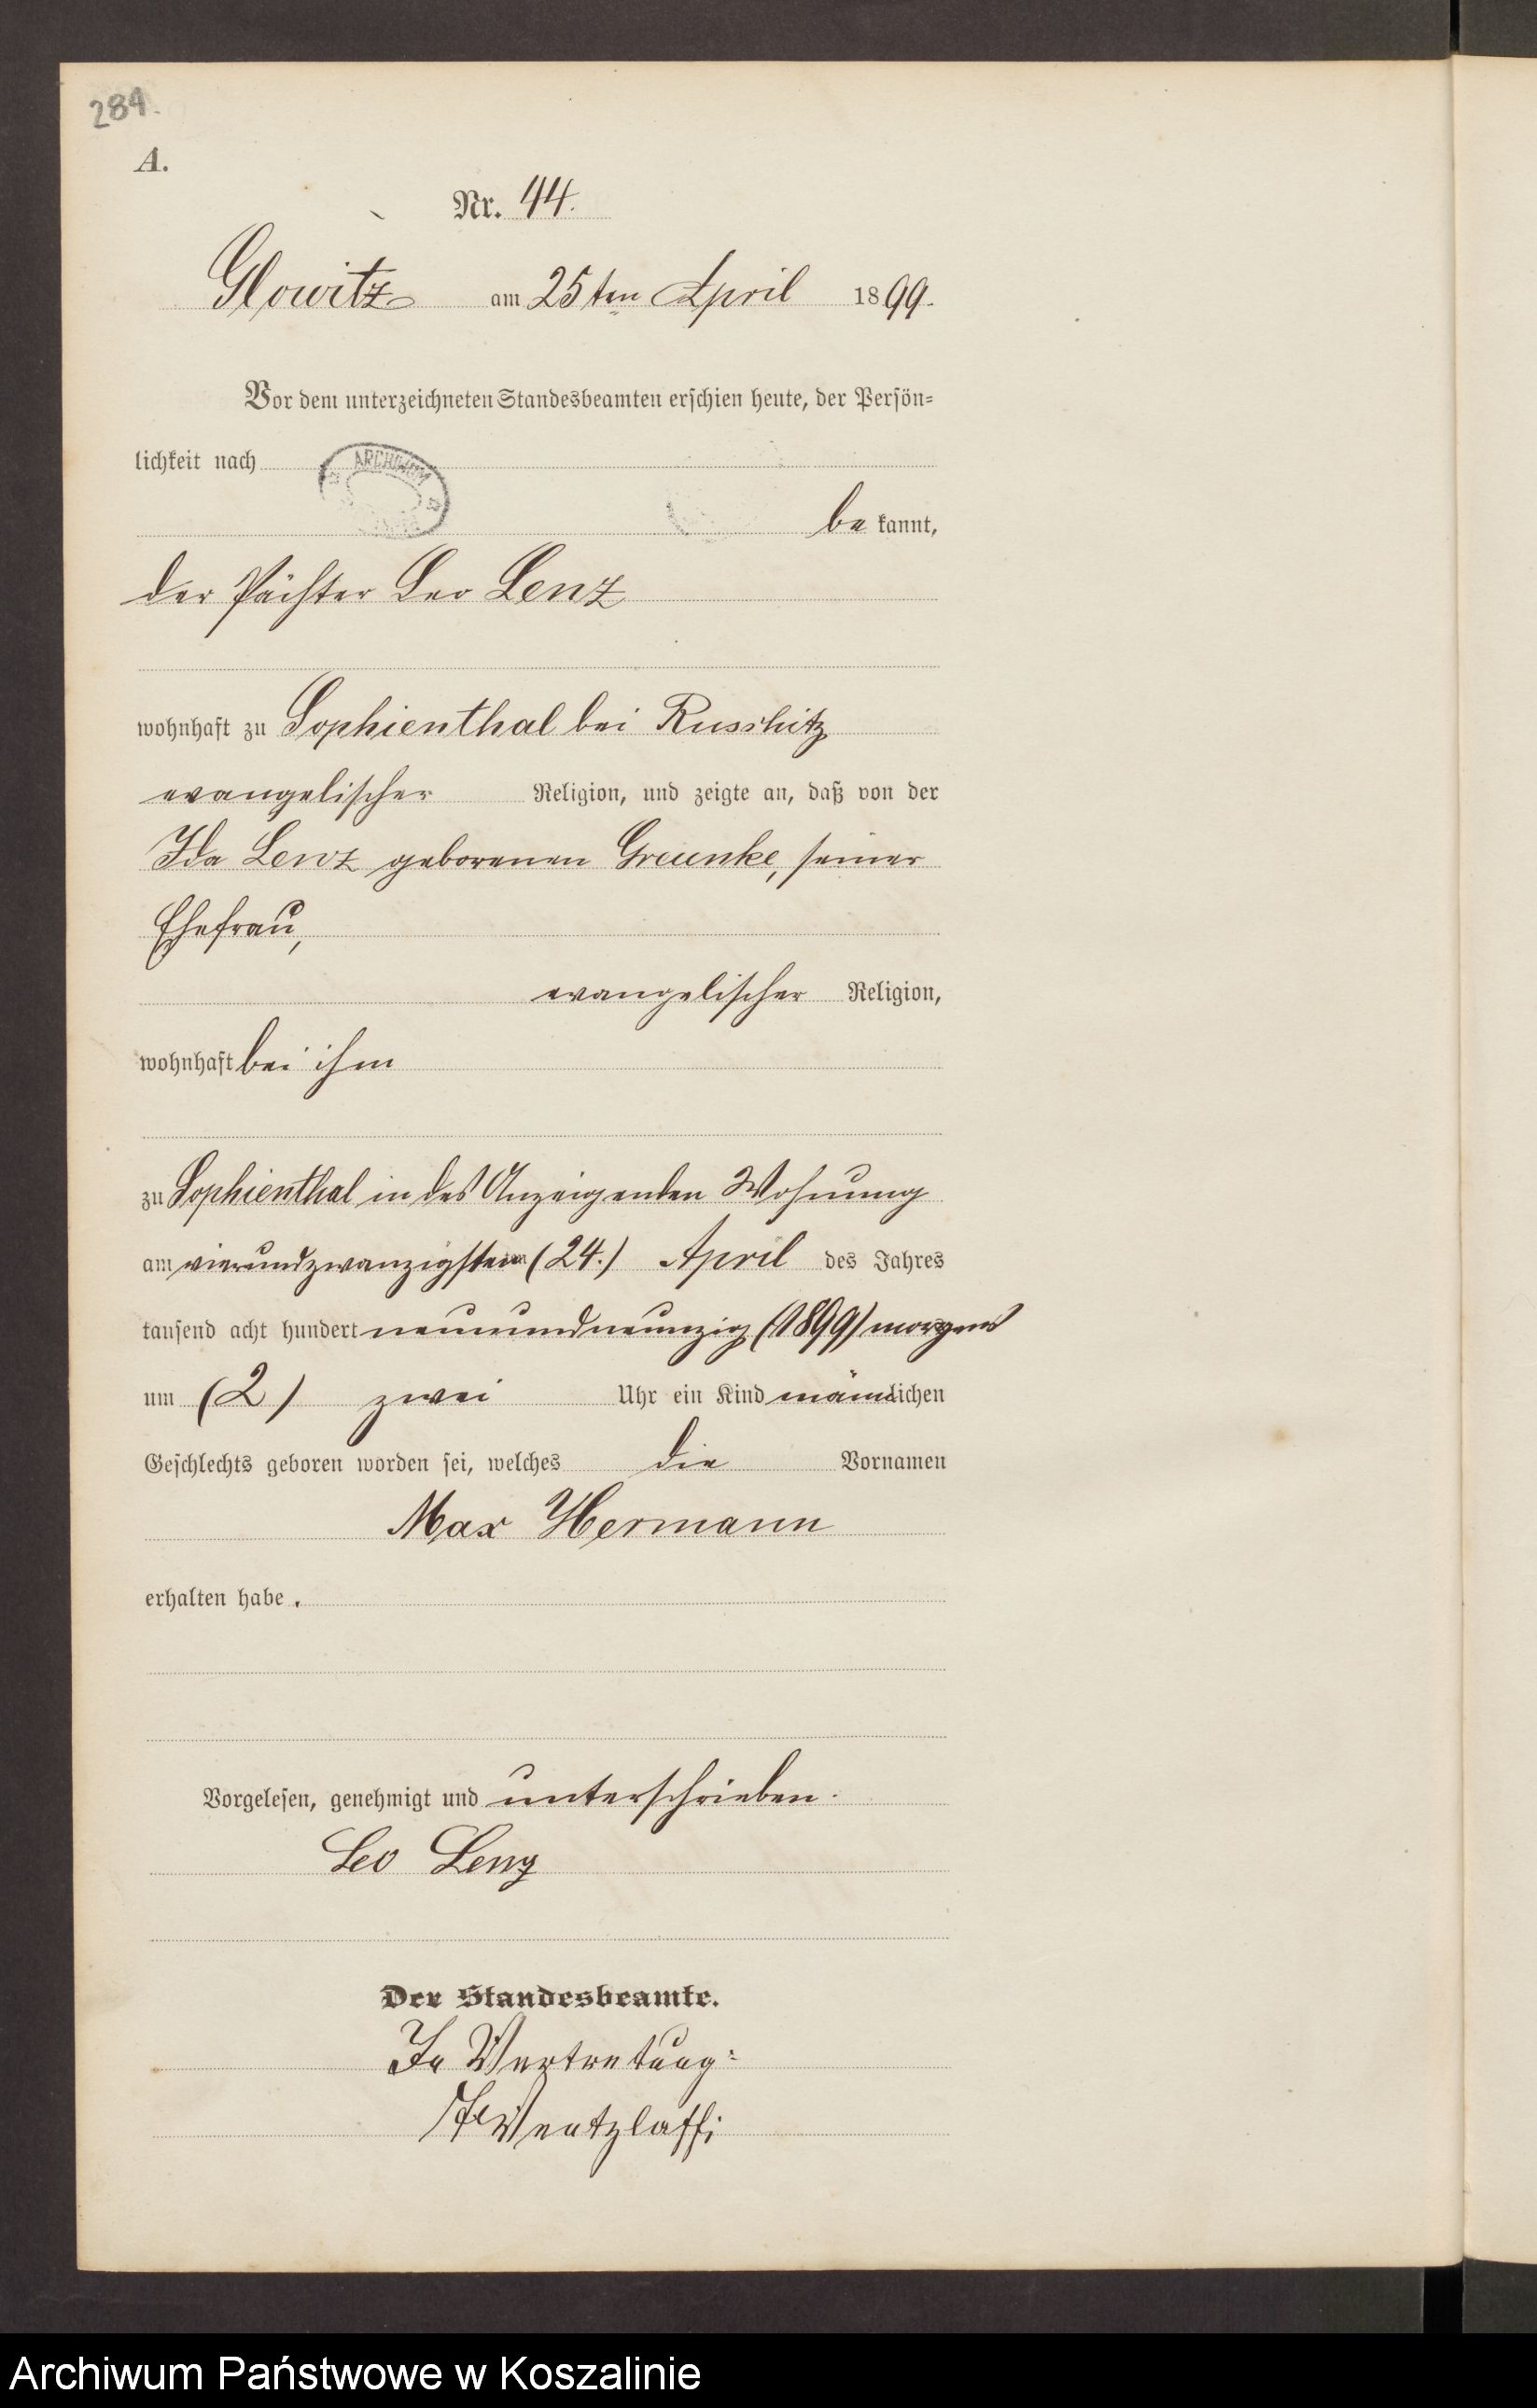 284.
A.
Nr. 44.
Glowitz am 25ten April 1899.
Vor dem unterzeichneten Standesbeamten erschien heute, der Persön-
lichkeit nach
ARCHIWUM
be kannt,
der Pächter Leo Lenz
wohnhaft zu Sophienthal bei Russhitz
evangelischer Religion, und zeigte an, daß von der
Ida Lenz geborenen Greunke, seiner
Ehefrau,
evangelischer Religion,
wohnhaft bei ihm
zu Sophienthal in des Anzeigenden Wohnung
am vierundzwanzigsten (24.) April des Jahres
tausend acht hundert neunundneunzig (1899) morgens
um (2) zwei Uhr ein Kind männlichen
Geschlechts geboren worden sei, welches die Vornamen
Max Hermann
erhalten habe.
Vorgelesen, genehmigt und unterschrieben.
Leo Lenz
Der Standesbeamte.
In Vertretung:
Wentzlaff
Archiwum Państwowe w Koszalinie